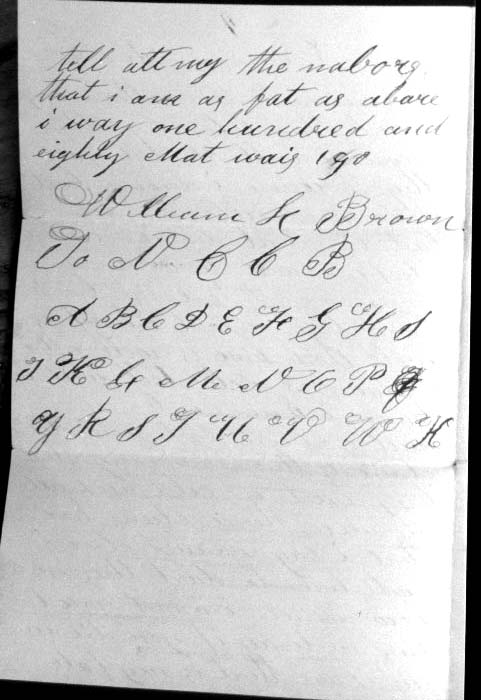 tell all my the nabors
that i am as fat as abare
i way one hundred and
eighty Mat wais 190
William H Brown
To N C C B
A B C D E F G H I
J K L M N O P Q
Y R S T U V W X